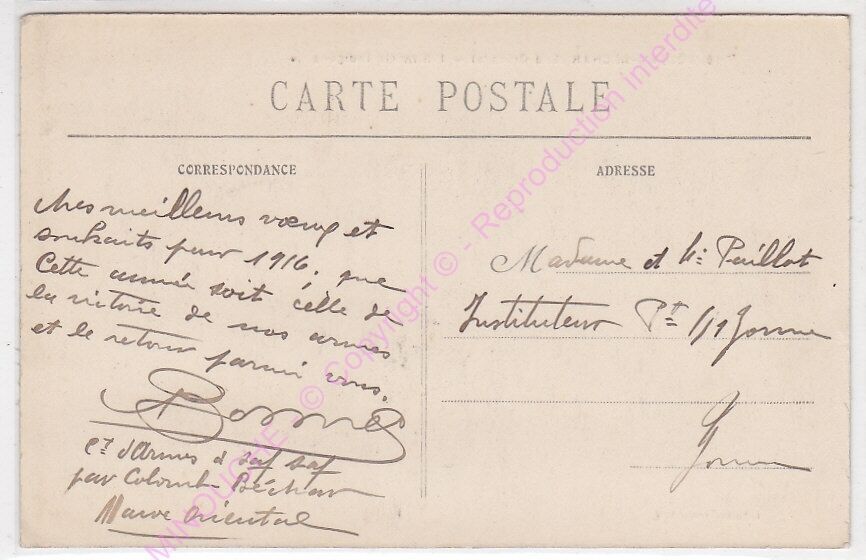 CARTE POSTALE
CORRESPONDANCE
Mes meilleurs vœux et
souhaits pour 1916, que
Cette année soit celle de
la victoire de nos armes
et le retour parmi vous.
Bonnet
Ct d'Armes à
par Colomb Béchar
Maroc Oriental
ADRESSE
Madame et Mr Paillot
Instituteur Pt s/ Yonne
Yonne
MINOUCHE - © Copyright © - Reproduction interdite